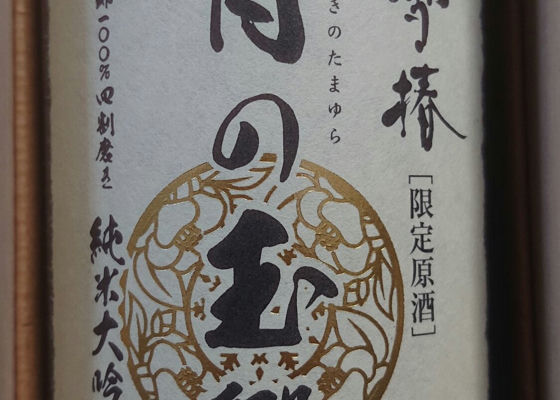 椿
[限定原酒]
きのたまゆら
月の玉
一〇〇%四割磨き
純米大吟